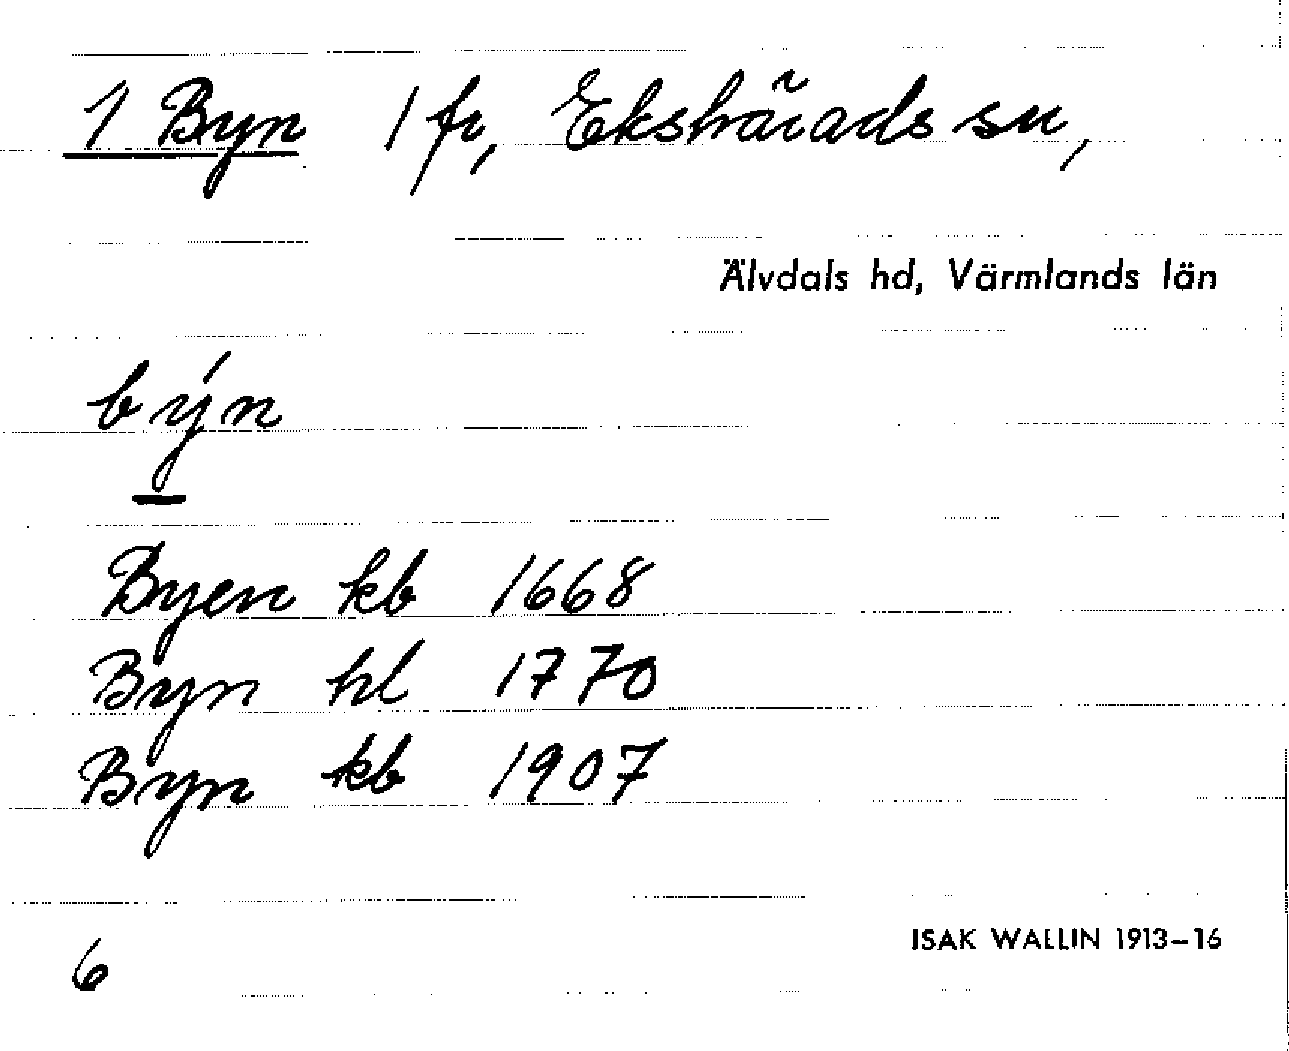 1 Byn 1 fr, Ekshärads sn,
Älvdals hd, Värmlands län
býn
Byen kb 1668
Byn hl 1770
Byn kb 1907
ISAK WALLIN 1913–16
6